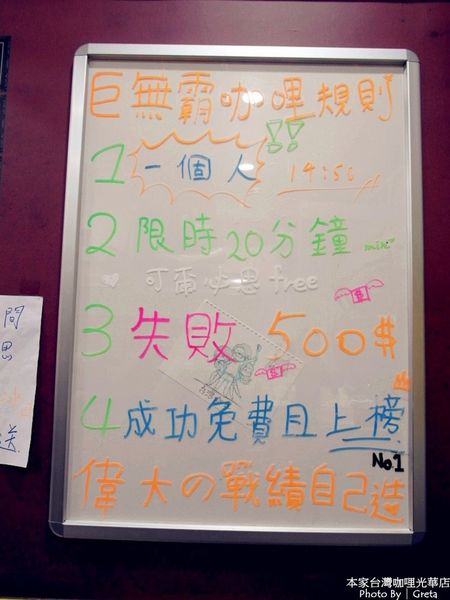 巨無霸咖哩規則
1 一個人 !! 14:50
2 限時20分鐘 min
可爾必思 free
3 失敗 500$
4 成功免費且上榜
No.1
偉大の戰績自己造
問
思
送
本家台灣咖哩光華店
Photo By | Greta